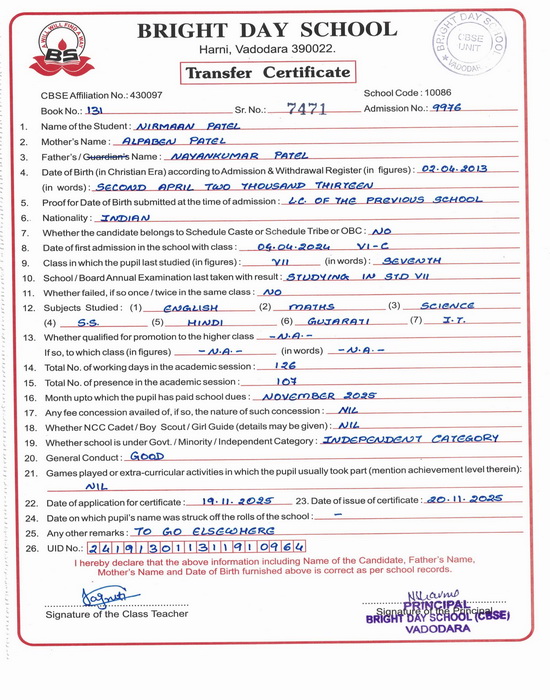 A WILL WILL FIND A WAY
BS
BRIGHT DAY SCHOOL
Harni, Vadodara 390022.
BRIGHT DAY SCHOOL
CBSE
UNIT
VADODARA
Transfer Certificate
CBSE Affiliation No.: 430097
School Code : 10086
Book No.: 131
Sr. No.: 7471
Admission No.: 9976
1. Name of the Student : NIRMAAN PATEL
2. Mother's Name : ALPABEN PATEL
3. Father's / Guardian's Name : NAYANKUMAR PATEL
4. Date of Birth (in Christian Era) according to Admission & Withdrawal Register (in figures) : 02.04.2013
(in words) : SECOND APRIL TWO THOUSAND THIRTEEN
5. Proof for Date of Birth submitted at the time of admission : L.C. OF THE PREVIOUS SCHOOL
6. Nationality : INDIAN
7. Whether the candidate belongs to Schedule Caste or Schedule Tribe or OBC : NO
8. Date of first admission in the school with class : 09.04.2024 VI-C
9. Class in which the pupil last studied (in figures) : VII (in words) : SEVENTH
10. School / Board Annual Examination last taken with result : STUDYING IN STD VII
11. Whether failed, if so once / twice in the same class : NO
12. Subjects Studied : (1) ENGLISH (2) MATHS (3) SCIENCE
(4) S.S. (5) HINDI (6) GUJARATI (7) I.T.
13. Whether qualified for promotion to the higher class -N.A.-
If so, to which class (in figures) -N.A.- (in words) -N.A.-
14. Total No. of working days in the academic session : 126
15. Total No. of presence in the academic session : 107
16. Month upto which the pupil has paid school dues : NOVEMBER 2025
17. Any fee concession availed of, if so, the nature of such concession : NIL
18. Whether NCC Cadet / Boy Scout / Girl Guide (details may be given) : NIL
19. Whether school is under Govt. / Minority / Independent Category : INDEPENDENT CATEGORY
20. General Conduct : GOOD
21. Games played or extra-curricular activities in which the pupil usually took part (mention achievement level therein):
NIL
22. Date of application for certificate : 19.11.2025 23. Date of issue of certificate : 20.11.2025
24. Date on which pupil's name was struck off the rolls of the school : -
25. Any other remarks : TO GO ELSEWHERE
26. UID No.: 241913011311910964
I hereby declare that the above information including Name of the Candidate, Father's Name,
Mother's Name and Date of Birth furnished above is correct as per school records.
Signature of the Class Teacher
Signature of the Principal
PRINCIPAL
BRIGHT DAY SCHOOL (CBSE)
VADODARA